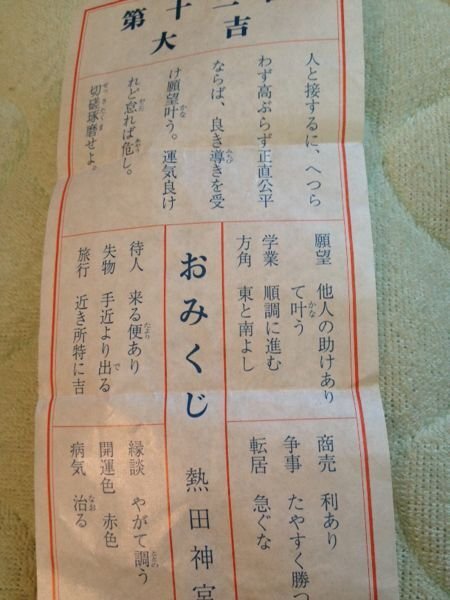 第十二
大吉
人と接するに、へつら
わず高ぶらず正直公平
ならば、良き導きを受
け願望叶う。運気良け
れど怠れば危し。
切磋琢磨せよ。
願望 他人の助けあり
て叶う
学業 順調に進む
方角 東と南よし
待人 来る便あり
失物 手近より出る
旅行 近き所特に吉
おみくじ 熱田神宮
商売 利あり
争事 たやすく勝つ
転居 急ぐな
縁談 やがて調う
開運色 赤色
病気 治る